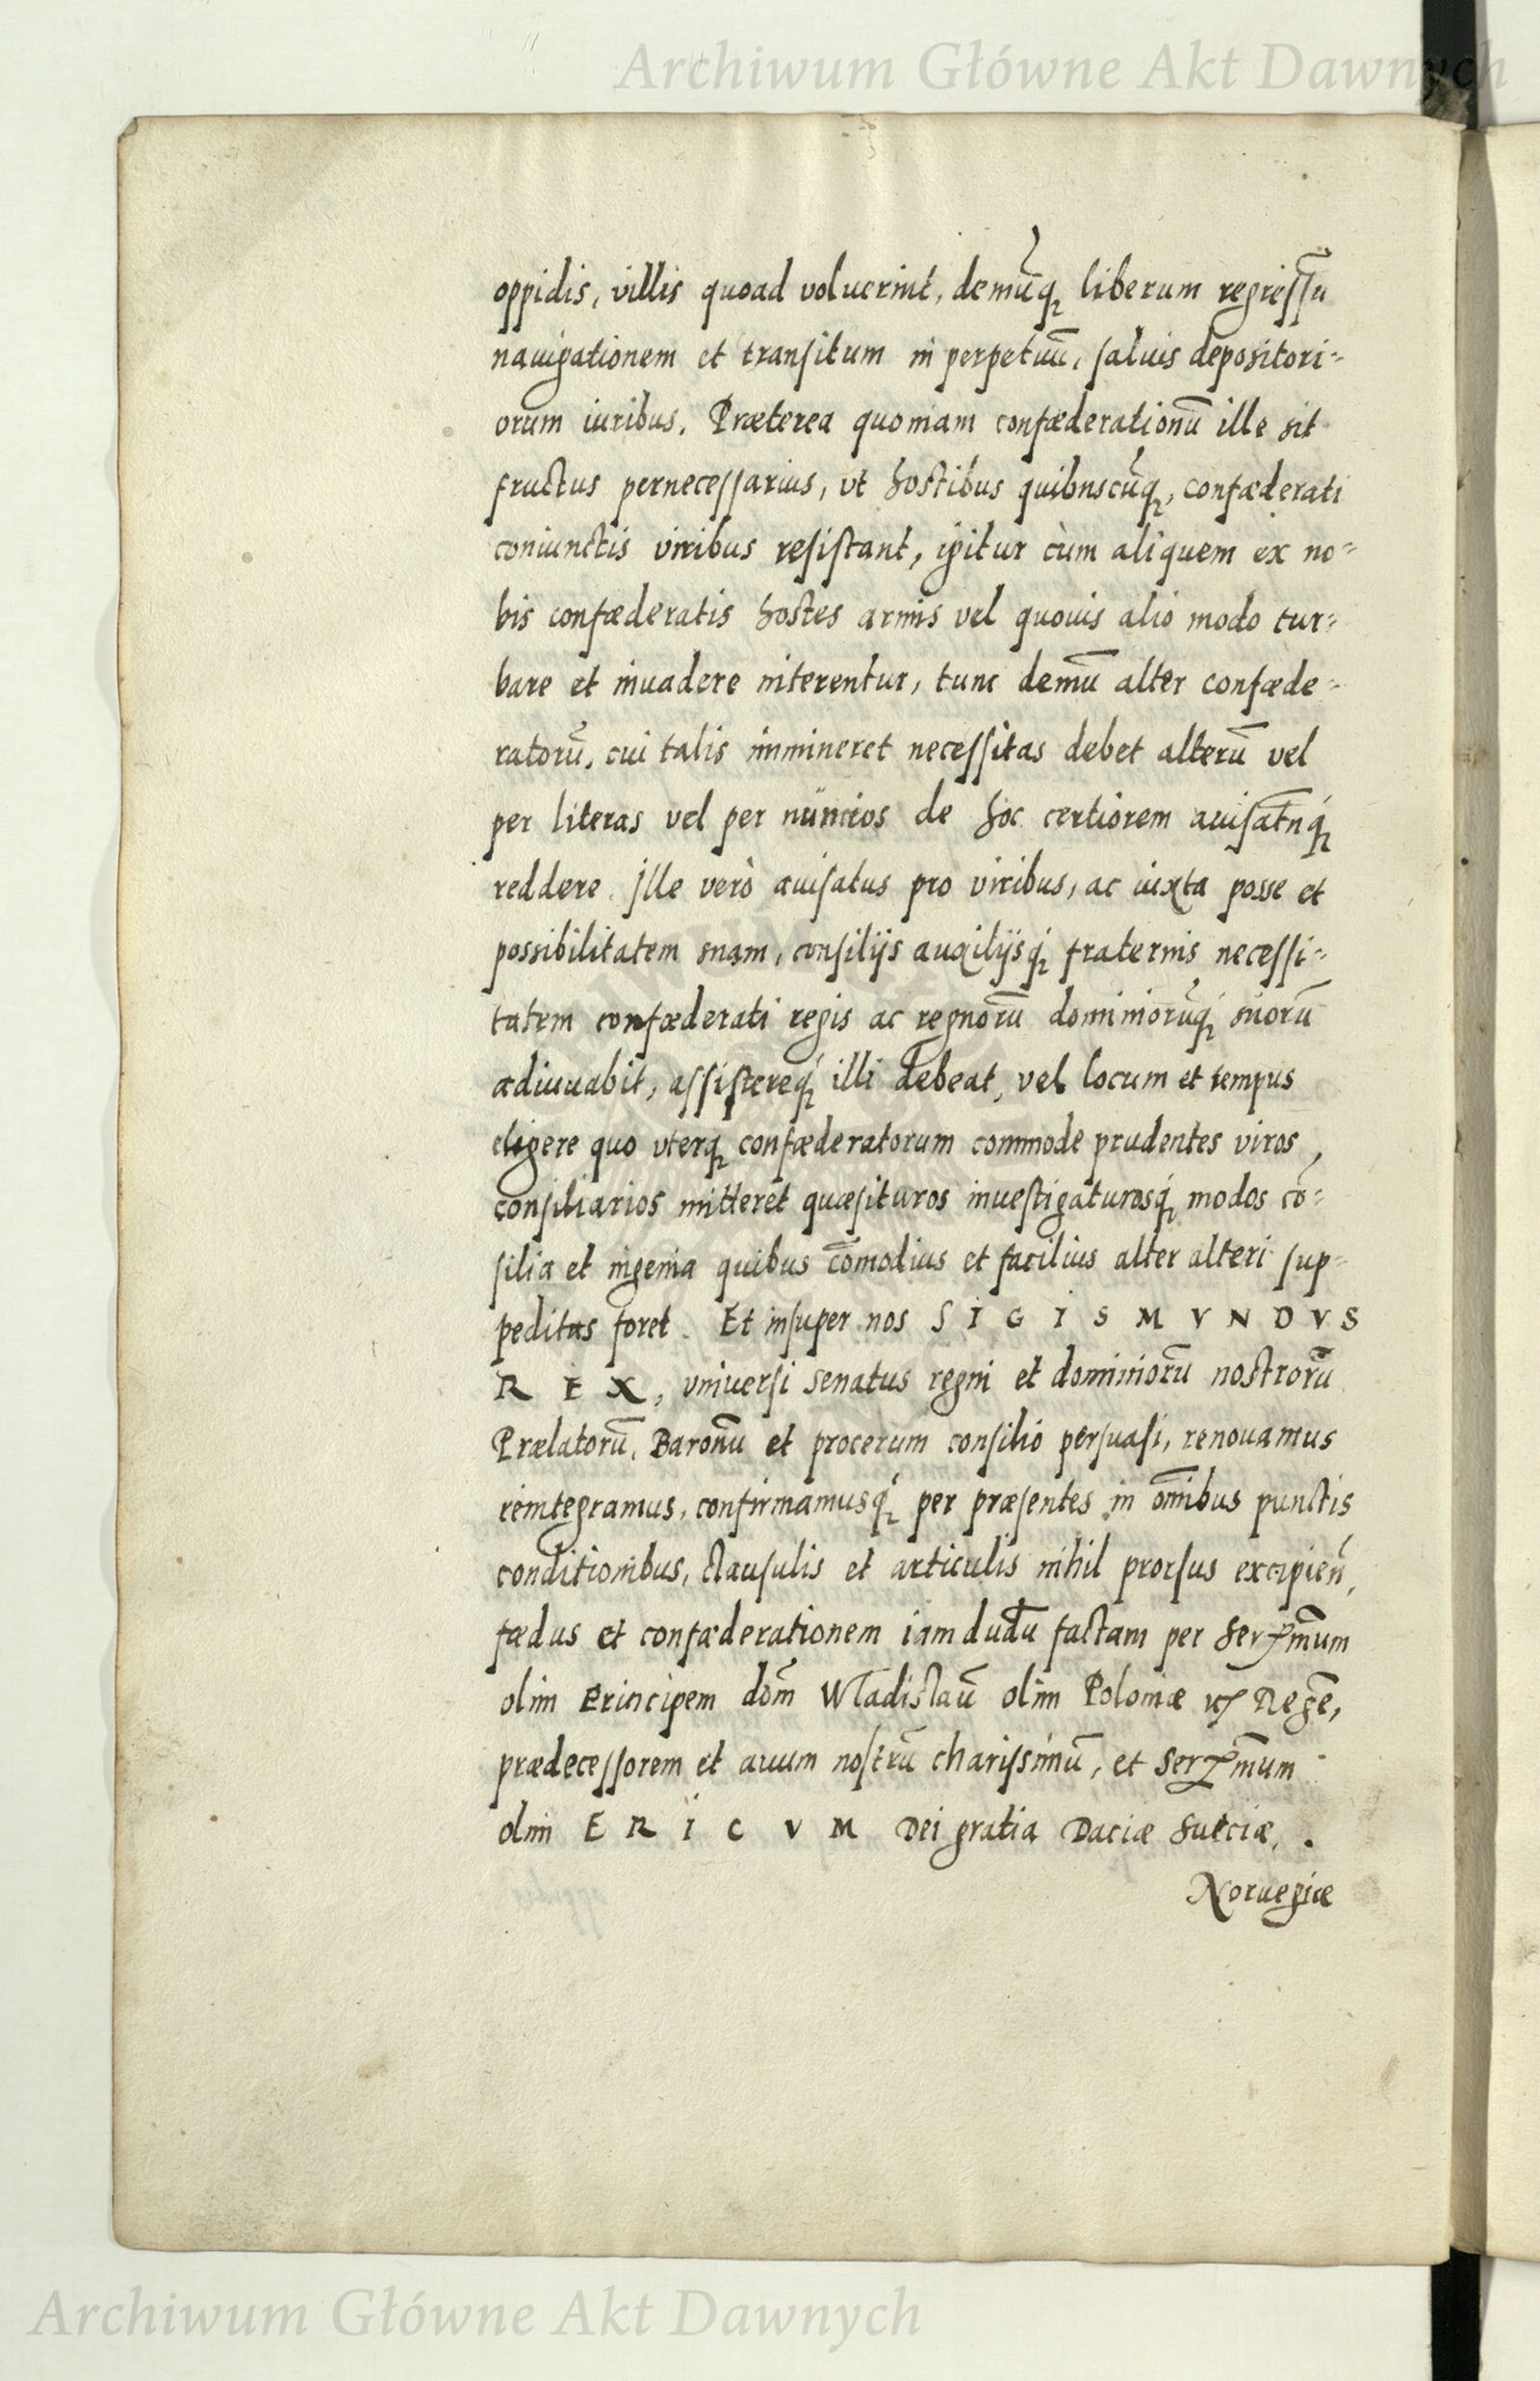 Archiwum Główne Akt Dawnych
oppidis, villis quoad voluerint, demũq, liberum regressũ
nauigationem et transitum in perpetuũ, saluis depositori-
orum iuribus. Præterea quoniam confæderationũ ille sit
fructus pernecessarius, vt hostibus quibuscũq, confæderati
coniunctis viribus resistant, igitur cùm aliquem ex no-
bis confæderatis hostes armis vel quouis alio modo tur-
bare et inuadere niterentur, tunc demũ alter confæde-
ratorũ, cui talis immineret necessitas debet alterũ vel
per literas vel per nũncios de hoc certiorem auisatũq,
reddere. Ille verò auisatus pro viribus, ac iuxta posse et
possibilitatem suam, consilijs auxilijsq, fraternis necessi-
tatem confæderati regis ac regnorũ dominiorũq, suorũ
adiuuabit, assistereq, illi debeat, vel locum et tempus
eligere quo vterq, confæderatorum commode prudentes viros,
consiliarios mitteret quæsituros inuestigaturosq, modos cõ-
silia et ingenia quibus cõmodius et facilius alter alteri sup-
peditas foret. Et insuper nos S I G I S M V N D V S
R E X, vniuersi senatus regni et dominiorũ nostrorũ
Prælatorũ, Baronũ et procerum consilio persuasi, renouamus
reintegramus, confirmamusq, per præsentes in oĩnibus punctis
conditionibus, clausulis et articulis nihil prorsus excipieñ,
fædus et confæderationem iam dudũ factam per Ser~mum
olim Principem dom̃ Wladislaũ olim Poloniæ etc Regẽ,
prædecessorem et auum nostrũ charissimũ, et Ser~mum
olim E R I C V M Dei gratia Daciæ Sueciæ,
Noruegiæ
Archiwum Główne Akt Dawnych